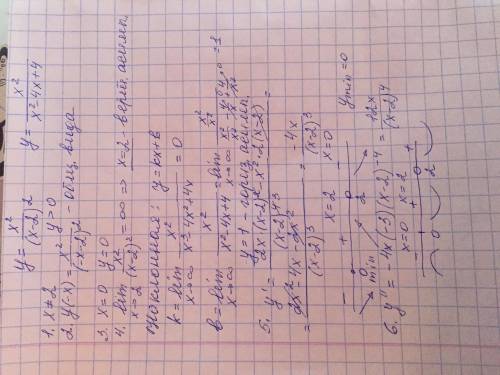 y = x²/(x-2)²    y = x²/(x²-4x+4)
1. x ≠ 2
2. y(-x) = x²/(-x-2)² - общ. вида
y > 0
3. x=0 y=0
4. lim x→2 x²/(x-2)² = ∞ => x=2 - верт. асимп.
Наклонная: y = kx+b
k = lim x→∞ x²/(x³-4x²+4x) = 0
b = lim x→∞ x²/(x²-4x+4) = lim x→∞ (x²/x²)/(x²/x² - 4x/x² + 4/x²) = 1
y=1 - гориз. асимп.
5. y' = (2x(x-2)² - x²·2(x-2))/(x-2)⁴ =
= (2x²-4x-2x²)/(x-2)³ = -4x/(x-2)³
x=2 x=0
- + -
0 2
min
y min = 0
6. y'' = -4x(-3)(x-2)⁻⁴ = 12x/(x-2)⁴
x=0 x=2
- + +
0 2